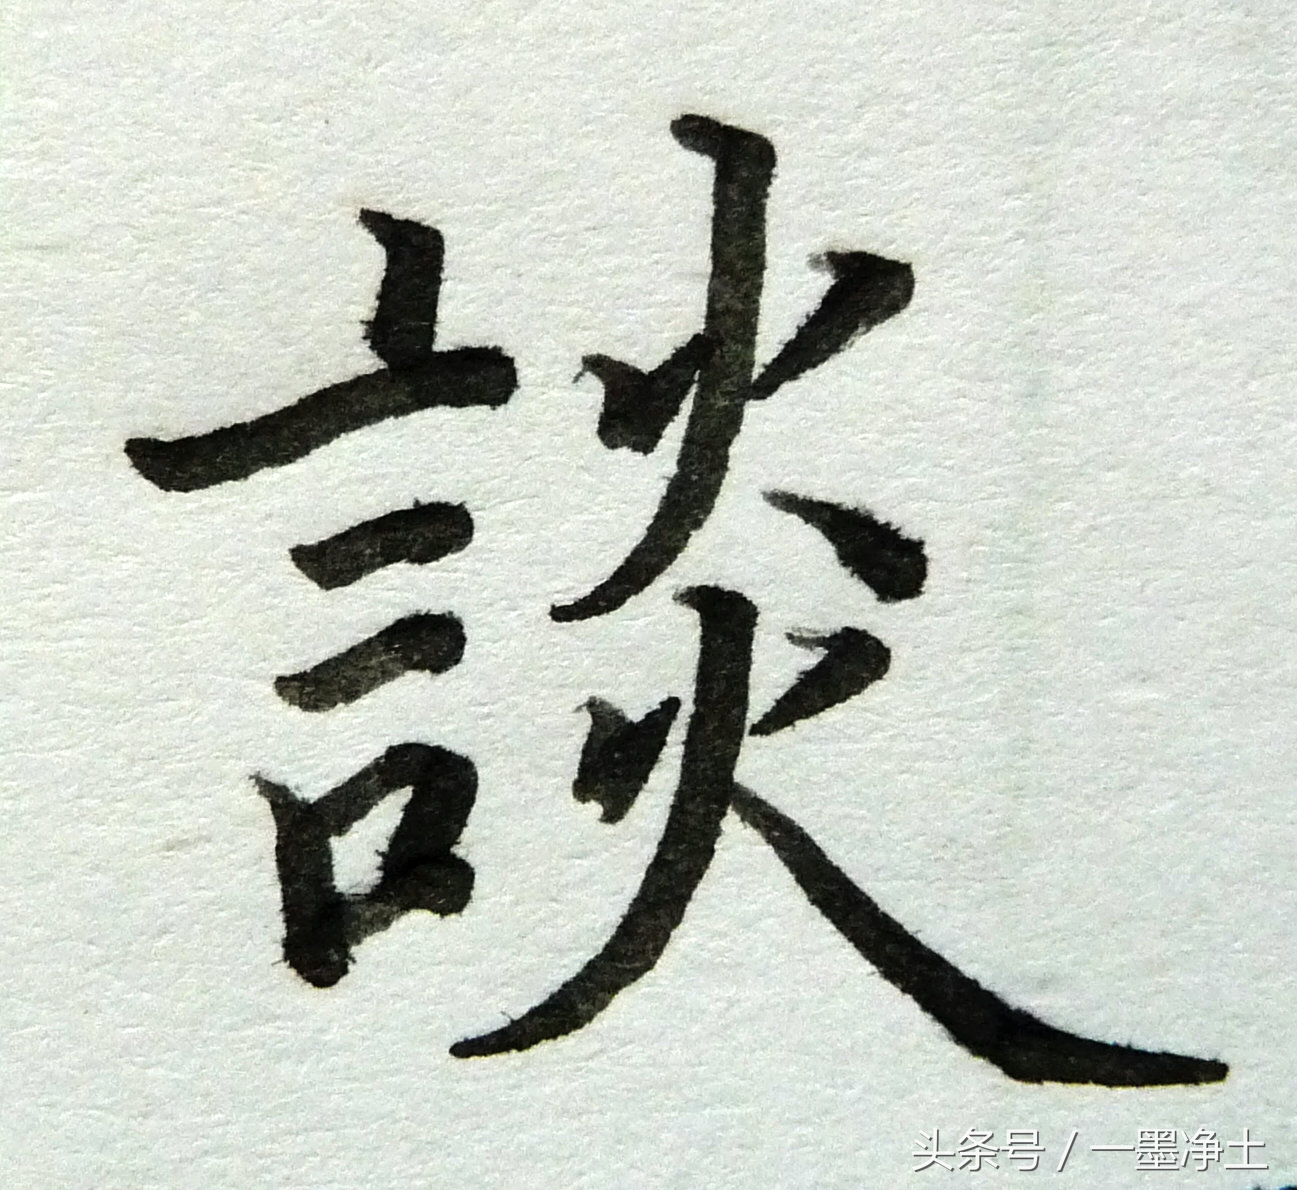 談
头条号 / 一墨净土